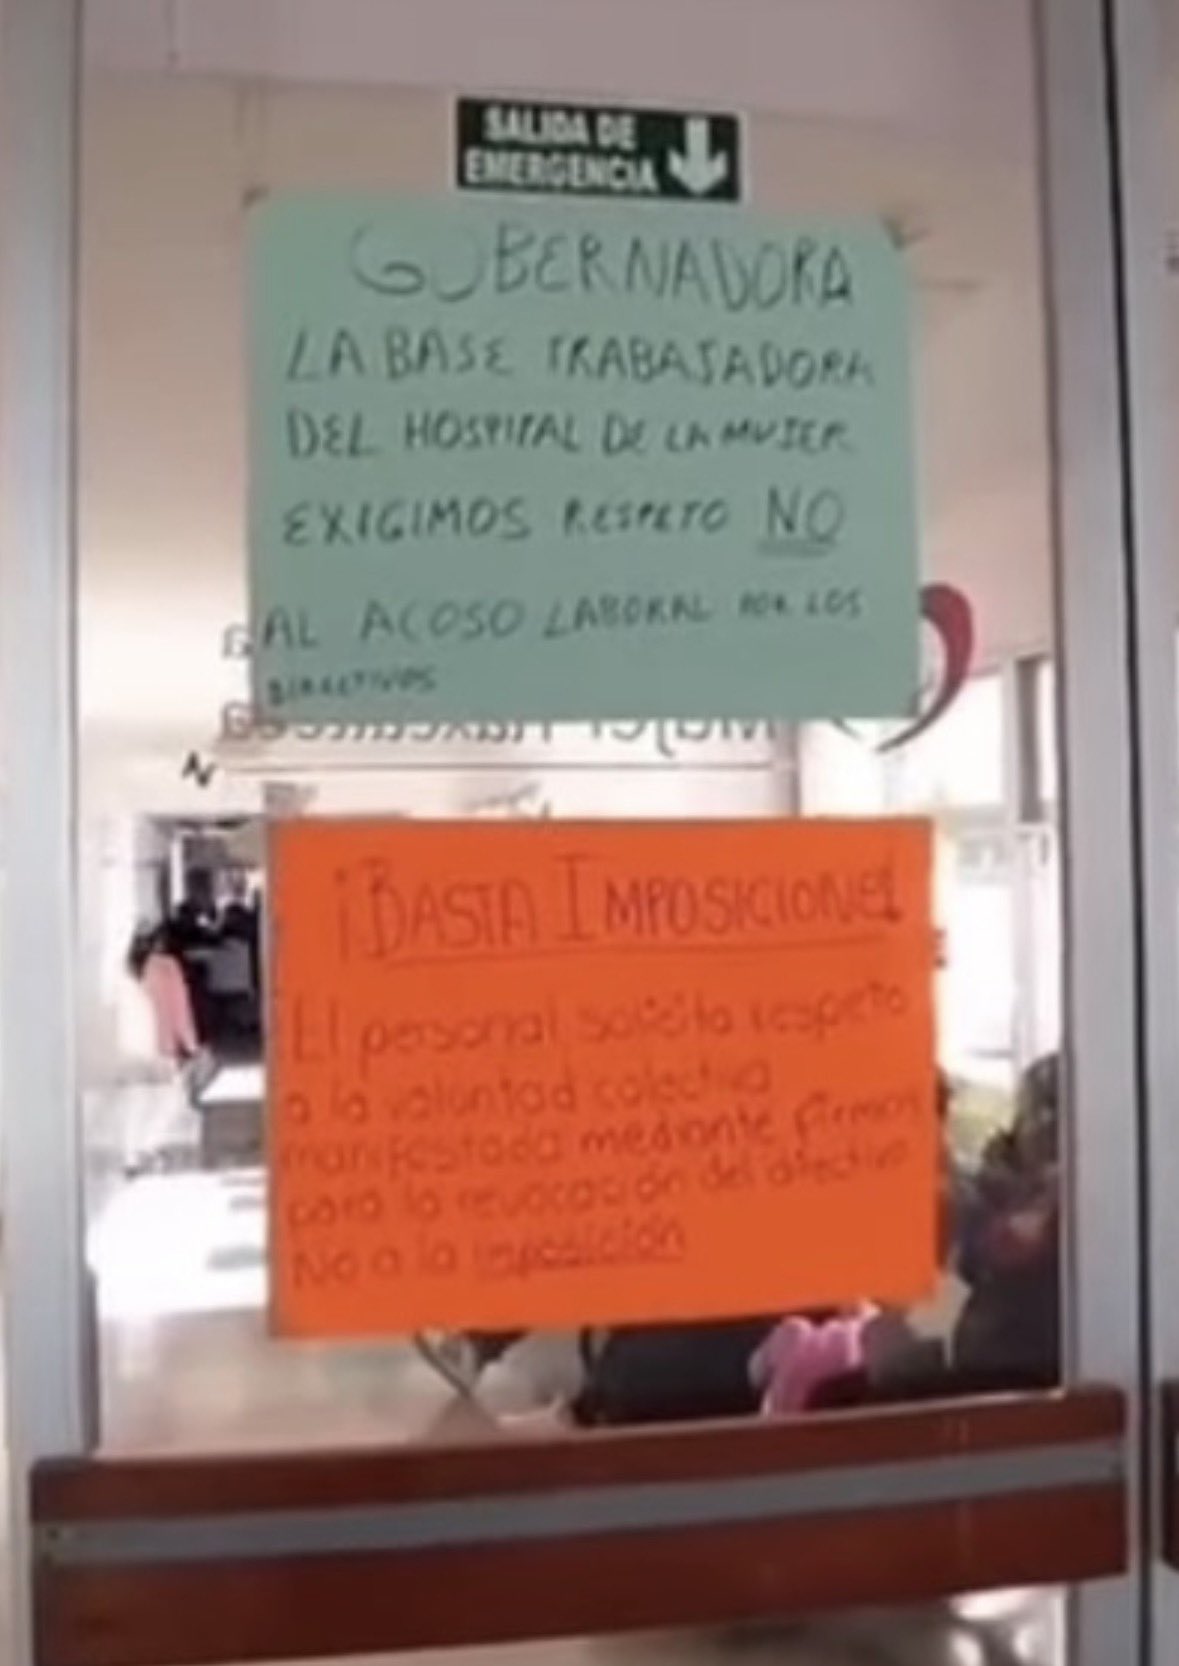 SALIDA DE
EMERGENCIA
GUBERNADORA
LA BASE TRABAJADORA
DEL HOSPITAL DE LA MUJER
EXIGIMOS RESPETO NO
AL ACOSO LABORAL POR LOS
DIRECTIVOS
Mujer Tlaxcalteca
¡BASTA IMPOSICIONES!
El personal solicita respeto
a la voluntad colectiva
manifestada mediante firmas
para la revocación del directivo
No a la imposición